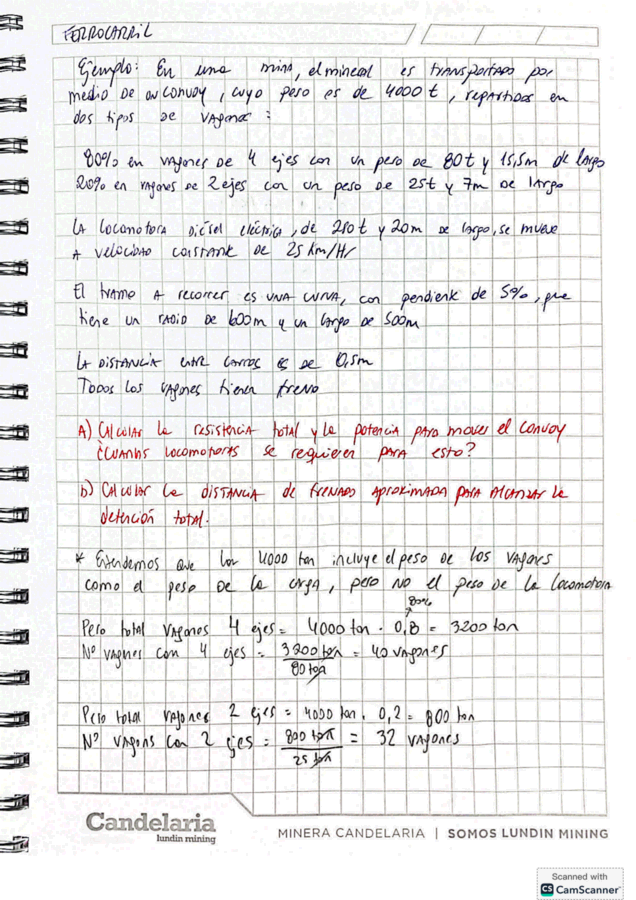 FERROCARRIL
Ejemplo: En una mina, el mineral es transportado por
medio de un convoy, cuyo peso es de 4000 t, repartidos en
dos tipos de vagones:
80% en vagones de 4 ejes con un peso de 80t y 15,5m de largo
20% en vagones de 2 ejes con un peso de 25t y 7m de largo
La locomotora diésel eléctrica, de 210 t y 20m de largo, se mueve
a velocidad constante de 25 km/Hr
El tramo a recorrer es una curva, con pendiente de 5%, que
tiene un radio de 600m y un largo de 500m
La distancia entre carros es de 0,5m
Todos los vagones tienen freno
A) Calcular la resistencia total y la potencia para mover el convoy
¿Cuantas locomotoras se requieren para esto?
b) Calcular la distancia de frenado aproximada para alcanzar la
detención total.
* Entendemos que los 4000 ton incluye el peso de los vagones
como el peso de la carga, pero no el peso de la locomotora
80%
Peso total vagones 4 ejes = 4000 ton · 0,8 = 3200 ton
Nº vagones con 4 ejes = 3200 ton / 80 ton = 40 vagones
Peso total vagones 2 ejes = 4000 ton · 0,2 = 800 ton
Nº vagons con 2 ejes = 800 ton / 25 ton = 32 vagones
Candelaria
lundin mining
MINERA CANDELARIA | SOMOS LUNDIN MINING
Scanned with
CS CamScanner